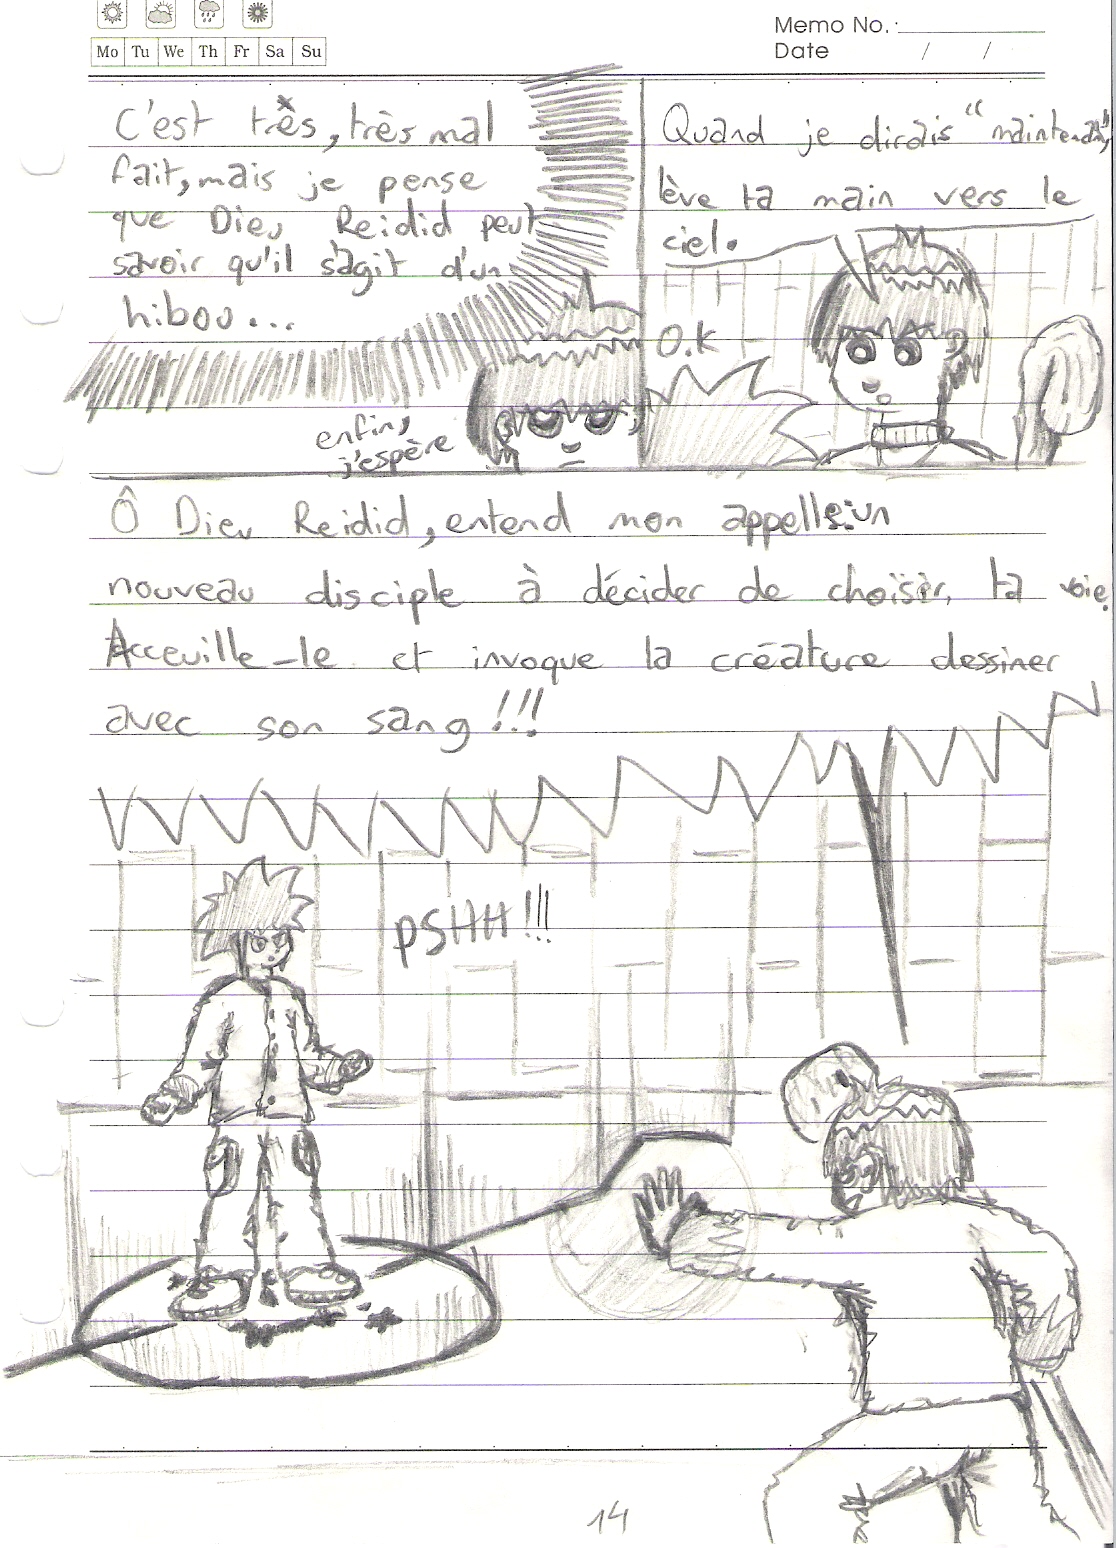 Memo No.:
Date / /
Mo Tu We Th Fr Sa Su
C'est très, très mal
fait, mais je pense
que Dieu Reidid peut
savoir qu'il s'agit d'un
hiboo...
enfin,
j'espère
Quand je dirais "maintenant",
lève ta main vers le
ciel.
O.K
Ô Dieu Reidid, entend mon appelle: un
nouveau disciple à décider de choisir, ta voie.
Acceuille-le et invoque la créature dessiner
avec son sang !!!
PSHH !!!
14